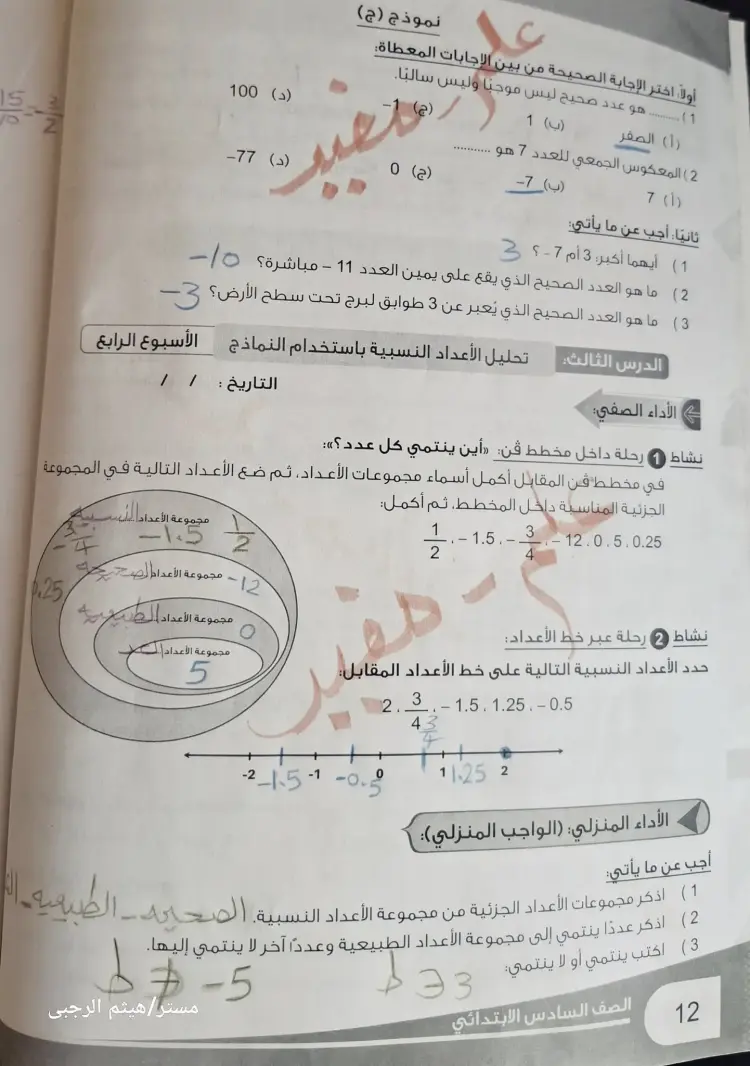 نموذج (ج)
أولاً: اختر الإجابة الصحيحة من بين الإجابات المعطاة:
1 ) .......... هو عدد صحيح ليس موجبًا وليس سالبًا.
(أ) الصفر (ب) 1 (ج) 1− (د) 100
2 ) المعكوس الجمعي للعدد 7 هو ...........
(أ) 7 (ب) 7− (ج) 0 (د) 77−
ثانيًا: أجب عن ما يأتي:
1 ) أيهما أكبر: 3 أم 7 - ؟ 3
2 ) ما هو العدد الصحيح الذي يقع على يمين العدد 11 – مباشرة؟ -10
3 ) ما هو العدد الصحيح الذي يُعبر عن 3 طوابق لبرج تحت سطح الأرض؟ -3
الدرس الثالث: تحليل الأعداد النسبية باستخدام النماذج الأسبوع الرابع
التاريخ : / /
الأداء الصفي:
نشاط 1 رحلة داخل مخطط ڤن: «أين ينتمي كل عدد؟»:
في مخطط ڤن المقابل أكمل أسماء مجموعات الأعداد، ثم ضع الأعداد التالية في المجموعة
الجزئية المناسبة داخل المخطط، ثم أكمل:
1/2 ، - 1.5 ، - 3/4 ، - 12 ، 0 ، 5 ، 0.25
مجموعة الأعداد النسبية
-3/4 -1.5 1/2
مجموعة الأعداد الصحيحة -12
0.25
مجموعة الأعداد الطبيعية 0
مجموعة الأعداد العد
5
علم - مفيد
علم - مفيد
نشاط 2 رحلة عبر خط الأعداد:
حدد الأعداد النسبية التالية على خط الأعداد المقابل:
2 ، 3/4 ، - 1.5 ، 1.25 ، - 0.5
3/4
-2 -1.5 -1 -0.5 0 1 1.25 2
الأداء المنزلي: (الواجب المنزلي):
أجب عن ما يأتي:
1 ) اذكر مجموعات الأعداد الجزئية من مجموعة الأعداد النسبية. الصحيحه - الطبيعيه -
2 ) اذكر عددًا ينتمي إلى مجموعة الأعداد الطبيعية وعددًا آخر لا ينتمي إليها.
3 ) اكتب ينتمي أو لا ينتمي:
12 الصف السادس الابتدائي
مستر/هيثم الرجبى